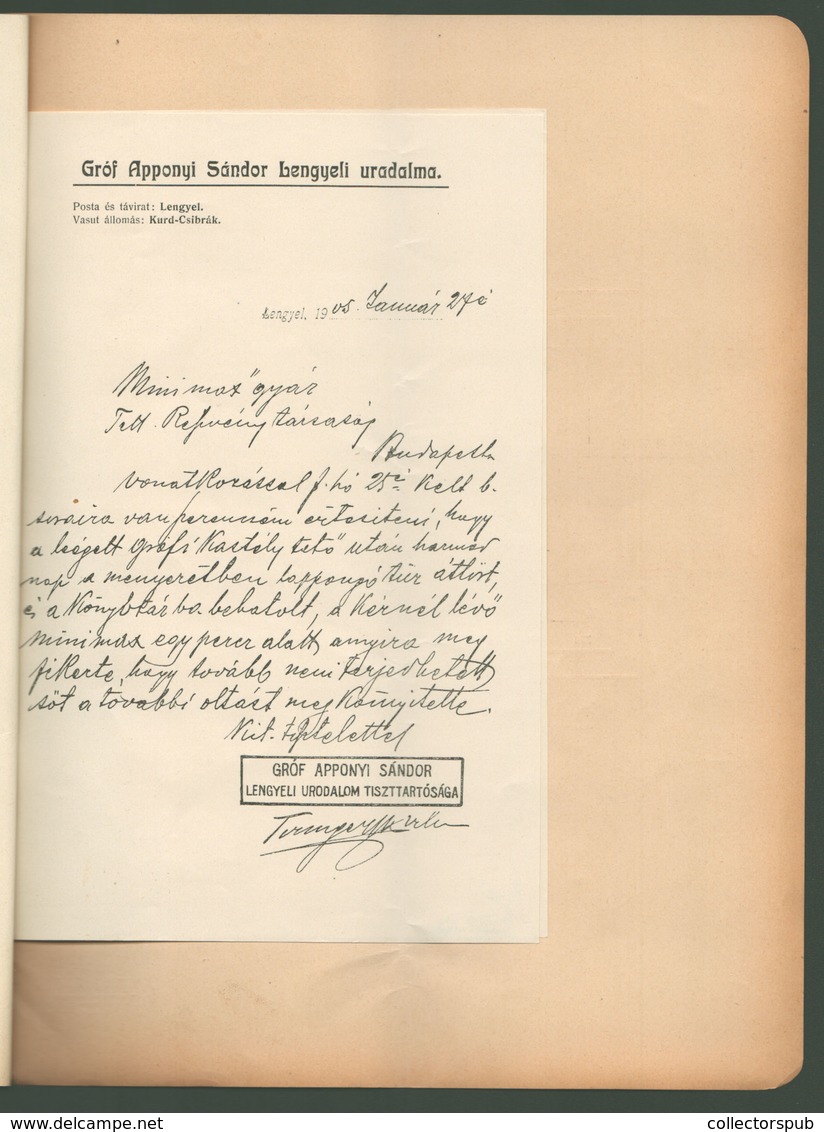 Gróf Apponyi Sándor Lengyeli uradalma.
Posta és távirat: Lengyel.
Vasut állomás: Kurd-Csibrák.
Lengyel, 1905. Január 27é
Minimax" gyár
Tett. Részvény társaság
Budapest
Vonatkozással f. hó 25é kelt b.
soraira van értesiteni, hogy
a leégett grófi kastély tető után harmad
nap a menyezetben lappangó tűz áttört,
és a könybtárba behatolt, a kéznél lévő
minimax egy percz alatt annyira meg
fékezte, hogy tovább nem terjedhetett
sőt a további oltást meg könyitette.
Kit. tisztelettel
GRÓF APPONYI SÁNDOR
LENGYELI URODALOM TISZTTARTÓSÁGA
collectorspub